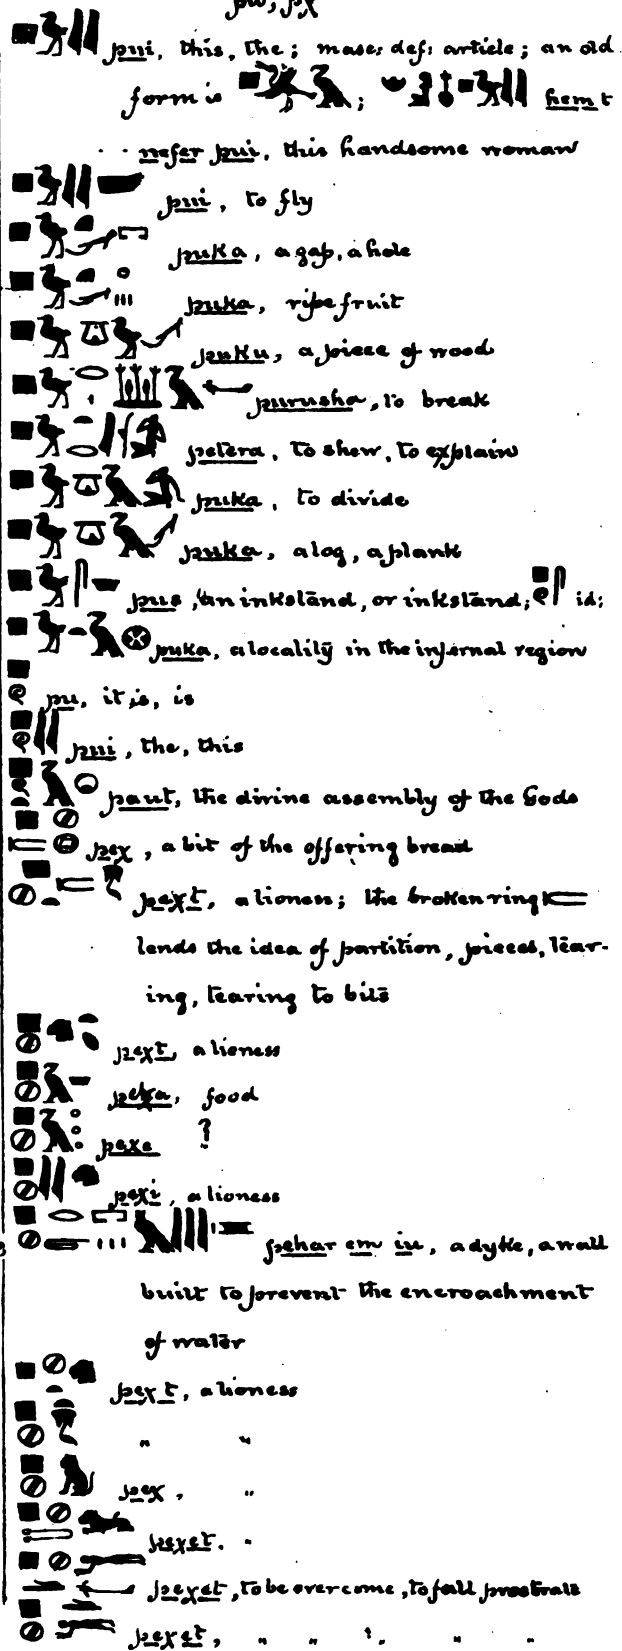 pu, pχ
pui, this, the; masc; def; article; an old
form is ; hem t
nefer pui, this handsome woman
pui, to fly
puka, a gap, a hole
puka, ripe fruit
puku, a piece of wood
purusha, to break
petera, to shew, to explain
puka, to divide
puka, a log, a plank
pus, an inkstand, or inkstand; id;
puka, a locality in the infernal region
pu, it is, is
pui, the, this
paut, the divine assembly of the Gods
pex, a bit of the offering bread
pext, a lioness; the broken ring
lends the idea of partition, pieces, tear-
ing, tearing to bits
pext, a lioness
food
pexe ?
pexi, a lioness
pehar em iu, a dyke, a wall
built to prevent the encroachment
of water
pex t, a lioness
" "
pex, "
pexet. "
pexet, to be overcome, to fall prostrate
pexet, " " ?, " "